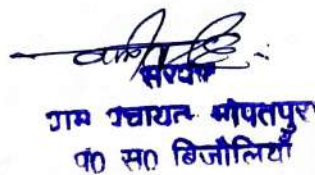 सरपंच
ग्राम पंचायत गोपतपुरा
पं० स० बिजौलियाँ